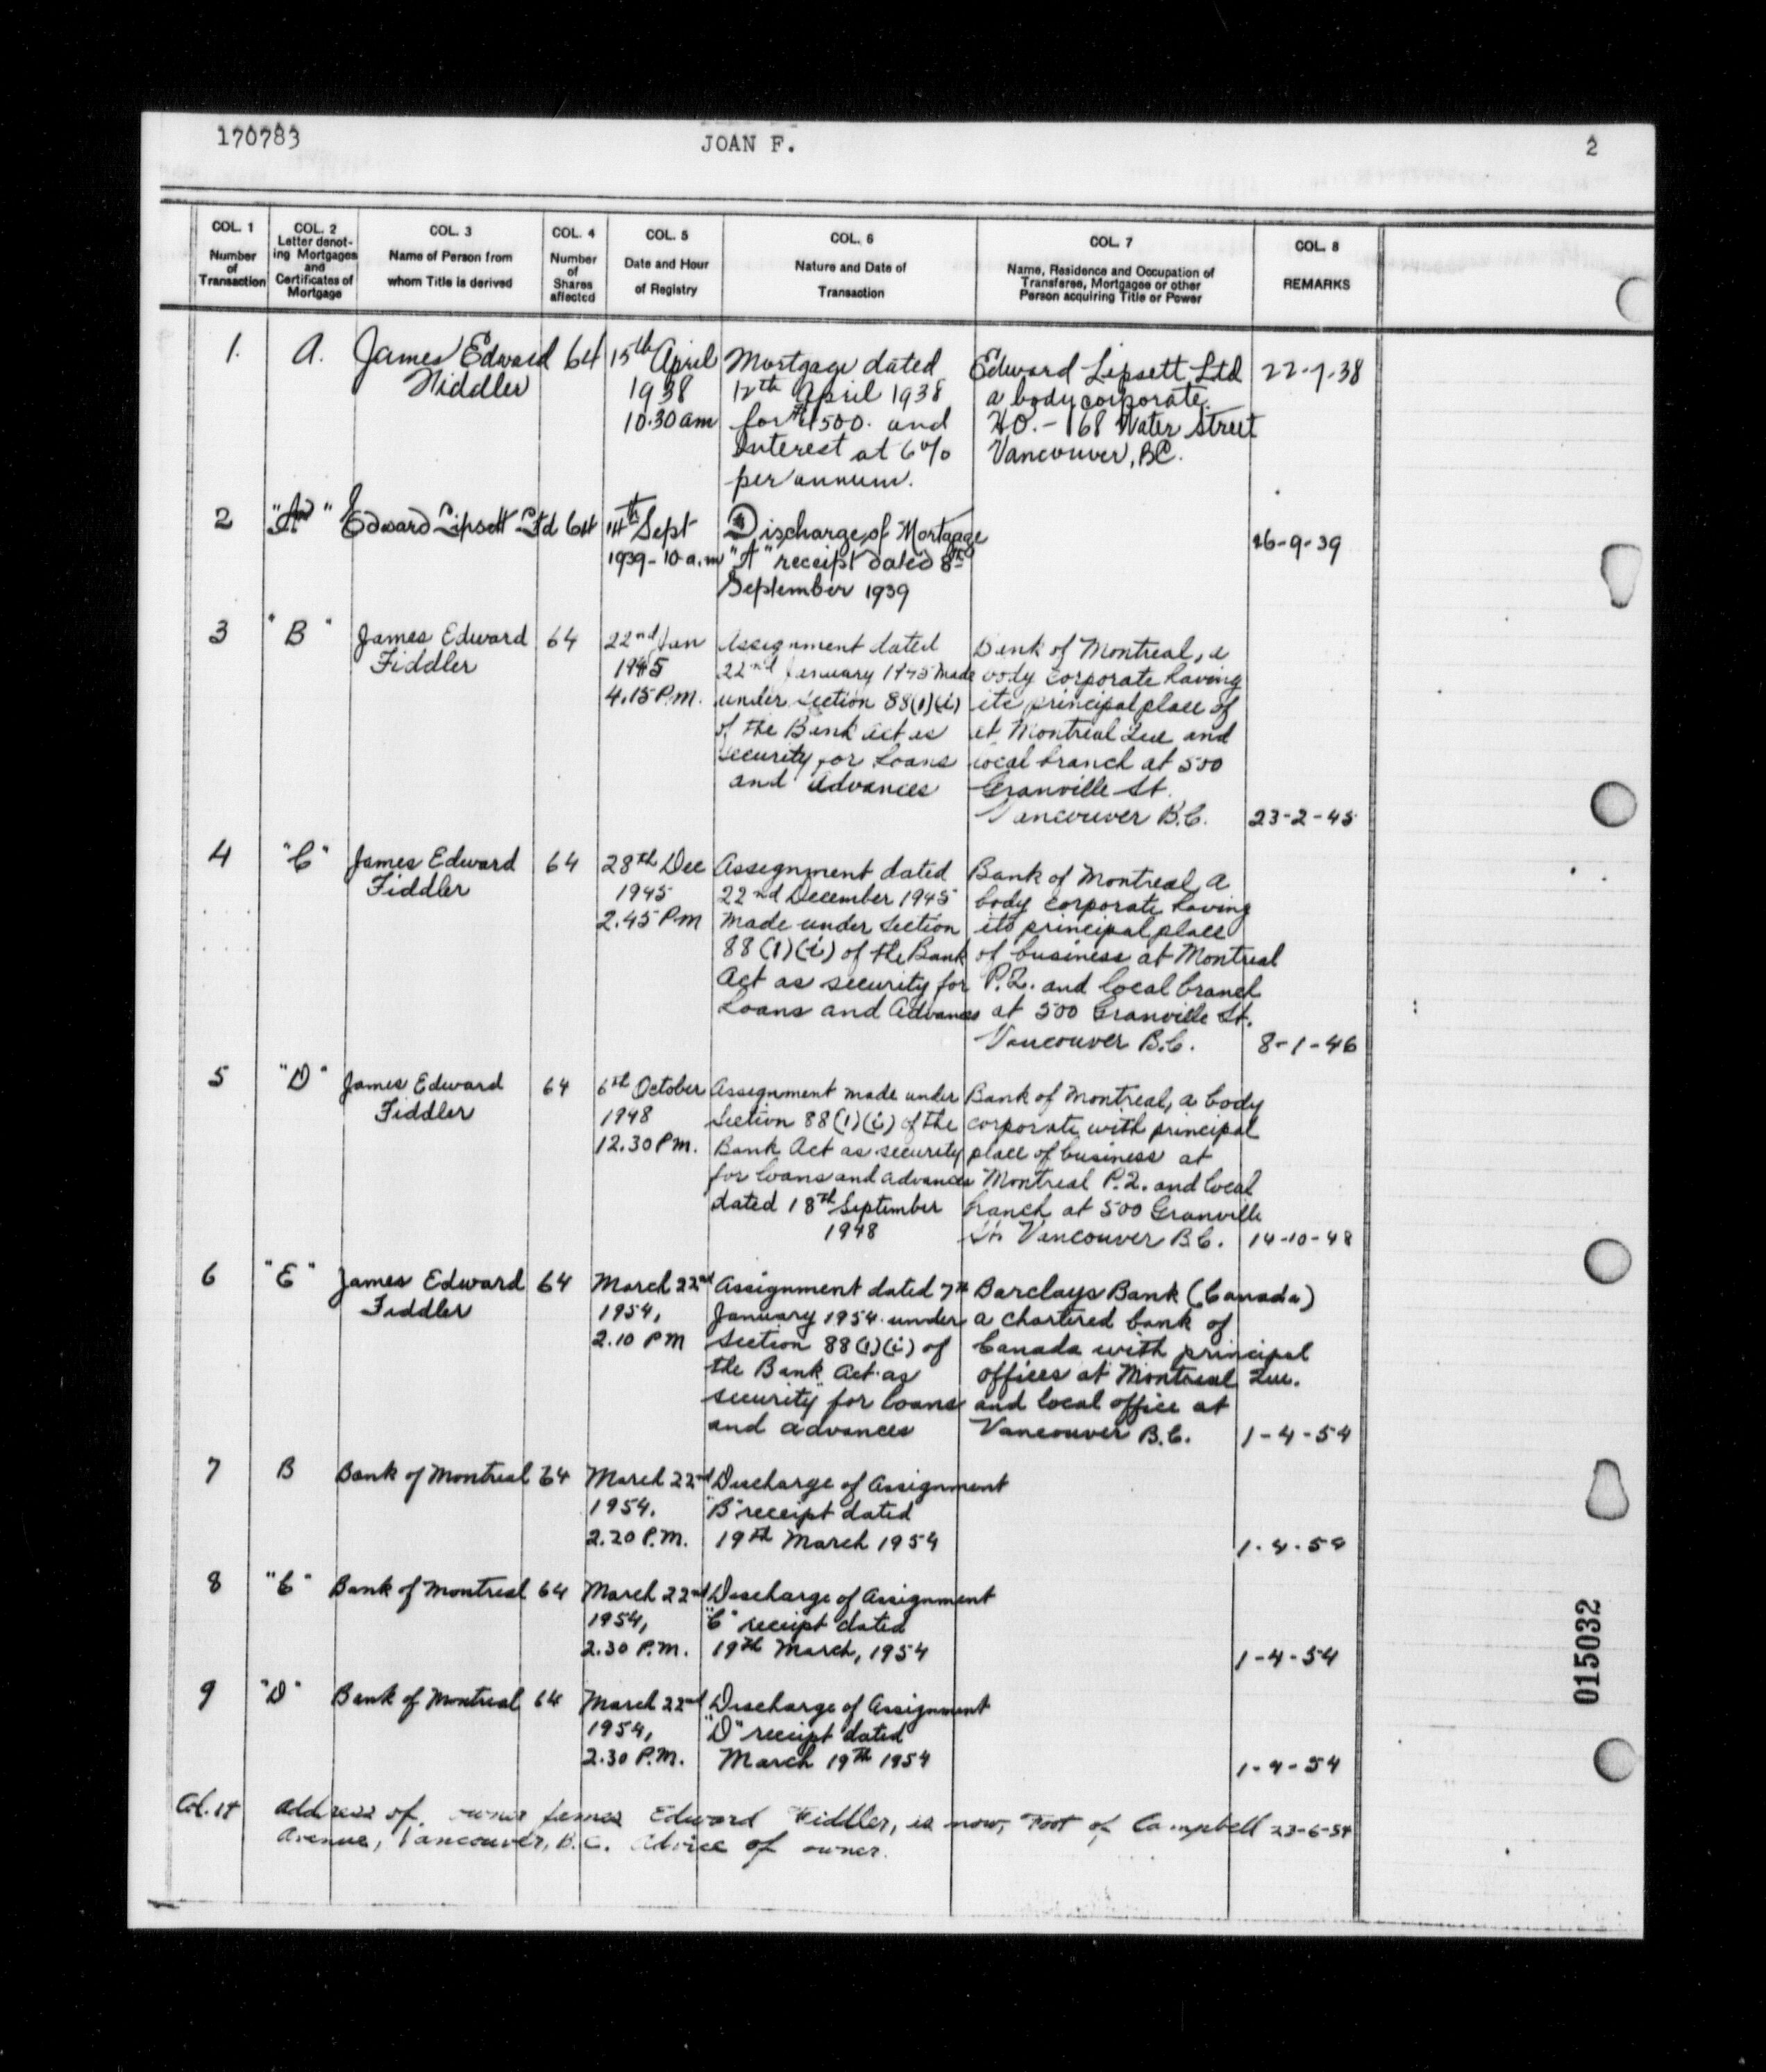 170783 JOAN F. 2
COL. 1 Number of Transaction
COL. 2 Letter denoting Mortgages and Certificates of Mortgage
COL. 3 Name of Person from whom Title is derived
COL. 4 Number of Shares affected
COL. 5 Date and Hour of Registry
COL. 6 Nature and Date of Transaction
COL. 7 Name, Residence and Occupation of Transferee, Mortgagee or other Person acquiring Title or Power
COL. 8 REMARKS
1. A. James Edward 64 15th April Mortgage dated Edward Lipsett Ltd 22-7-38
Fiddler 1938 12th April 1938 a body corporate.
10.30 am for $1500. and H.O. - 68 Water Street
Interest at 6% Vancouver, BC.
per annum.
2 "A" Edward Lipsett Ltd 64 14th Sept Discharge of Mortgage
1939 - 10 a.m "A" receipt dated 8th 16-9-39
September 1939
3 "B" James Edward 64 22nd Jan Assignment dated Bank of Montreal, a
Fiddler 1945 22nd January 1945 made body corporate having
4.15 P.M. under section 88(1)(i) its principal place of
of the Bank Act as at Montreal Que and
security for Loans local branch at 500
and Advances Granville St.
Vancouver B.C. 23-2-45
4 "C" James Edward 64 28th Dec Assignment dated Bank of Montreal, a
Fiddler 1945 22nd December 1945 body corporate having
2.45 P.M made under Section its principal place
88(1)(i) of the Bank of business at Montreal
Act as security for P.Q. and local branch
Loans and Advances at 500 Granville St.
Vancouver B.C. 8-1-46
5 "D" James Edward 64 6th October Assignment made under Bank of Montreal, a body
Fiddler 1948 Section 88(1)(i) of the corporate with principal
12.30 P.M. Bank Act as security place of business at
for loans and advances Montreal P.Q. and local
dated 18th September branch at 500 Granville
1948 St. Vancouver B.C. 14-10-48
6 "E" James Edward 64 March 22nd Assignment dated 7th Barclays Bank (Canada)
Fiddler 1954, January 1954 under a chartered bank of
2.10 PM Section 88(1)(i) of Canada with principal
the Bank Act as offices at Montreal Que.
security for loans and local office at
and advances Vancouver B.C. 1-4-54
7 B Bank of Montreal 64 March 22nd Discharge of Assignment
1954. "B" receipt dated
2.20 P.M. 19th March 1954 1-4-54
8 "C" Bank of Montreal 64 March 22nd Discharge of Assignment
1954, "C" receipt dated
2.30 P.M. 19th March, 1954 1-4-54
9 "D" Bank of Montreal 64 March 22nd Discharge of Assignment
1954, "D" receipt dated
2.30 P.M. March 19th 1954 1-4-54
Col. 14 Address of owner James Edward Fiddler, is now, Foot of Campbell 23-6-54
Avenue, Vancouver, B.C. Advice of owner.
015032